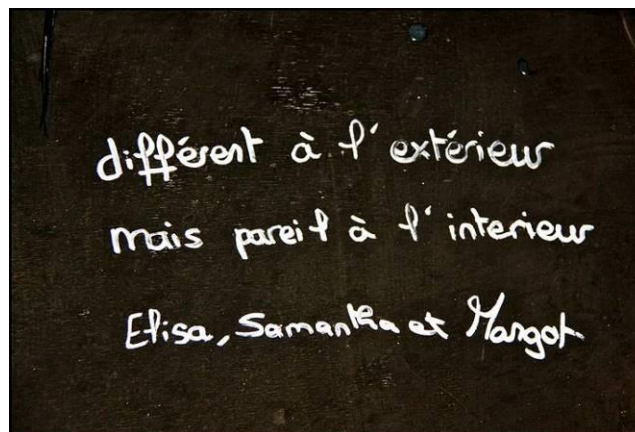 différent à l'extérieur
mais pareil à l'interieur
Elisa, Samantha et Margot